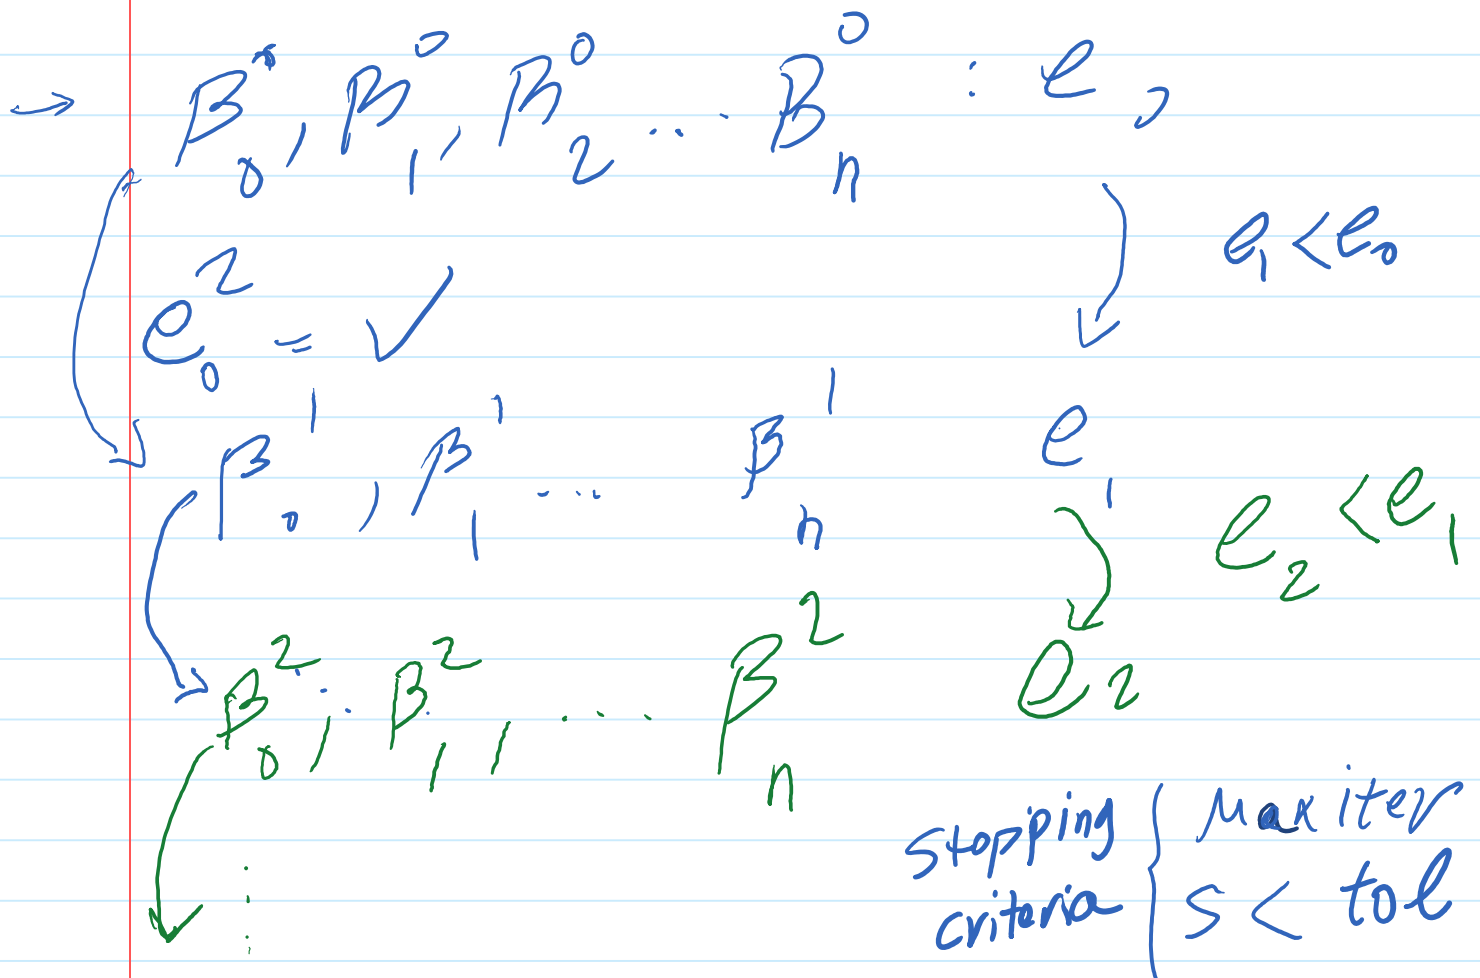 → β₀⁰, β₁⁰, β₂⁰ ... β⁰ₙ : e₀
e₁ < e₀
e₀² = ✓
β₀¹, β₁¹ ... βₙ¹ e₁
e₂ < e₁
β₀², β₁², ... βₙ² e₂
⋮
stopping criteria { Max iter
s < tol